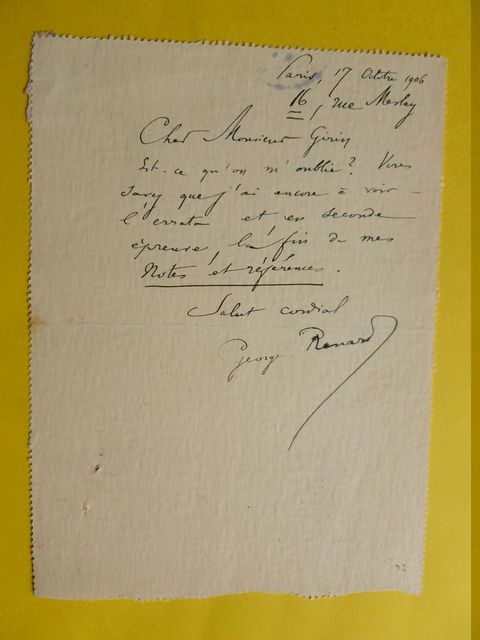 Paris, 17 Octobre 1906
16, rue Meslay
Cher Monsieur Girin
Est-ce qu'on m'oublie? Vous
savez que j'ai encore à voir
l'errata et, en seconde
épreuve, la fin de mes
Notes et références.
Salut cordial
George Renard